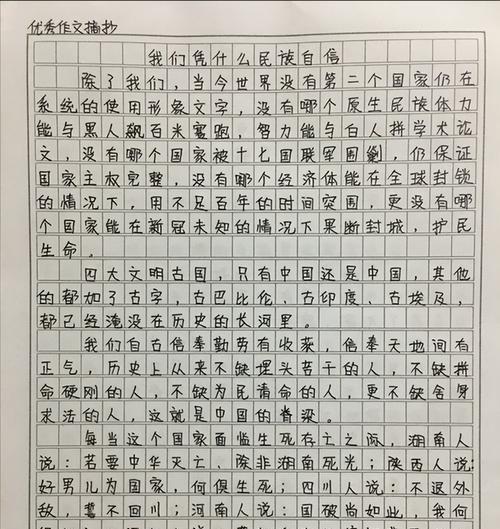 优秀作文摘抄
我们凭什么民族自信
除了我们，当今世界没有第二个国家仍在
系统的使用形象文字，没有哪个原生民族体力
能与黑人飙百米赛跑，智力能与白人拼学术论
文，没有哪个国家被十七国联军围剿，仍保证
国家主权完整，没有哪个经济体能在全球封锁
的情况下，用不足百年的时间突围，更没有哪
个国家能在新冠未知的情况下果断封城，护民
生命。
四大文明古国，只有中国还是中国，其他
的都加了古字，古巴比伦、古印度、古埃及，
都已经淹没在历史的长河里。
我们自古信奉勤劳有收获，信奉天地间有
正气，历史上从来不缺埋头苦干的人，不缺拼
命硬刚的人，不缺为民请命的人，更不缺舍身
求法的人，这就是中国的脊梁。
每当这个国家面临生死存亡之际，湖南人
说：若要中华灭亡、除非湖南死光；陕西人说:
好男儿为国家，何俱生死；四川人说：不退外
敌，誓不回川；河南人说：国破尚如此，我何